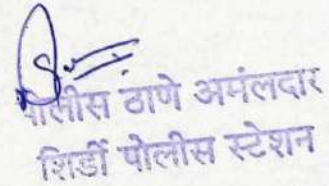 पोलीस ठाणे अमंलदार
शिर्डी पोलीस स्टेशन